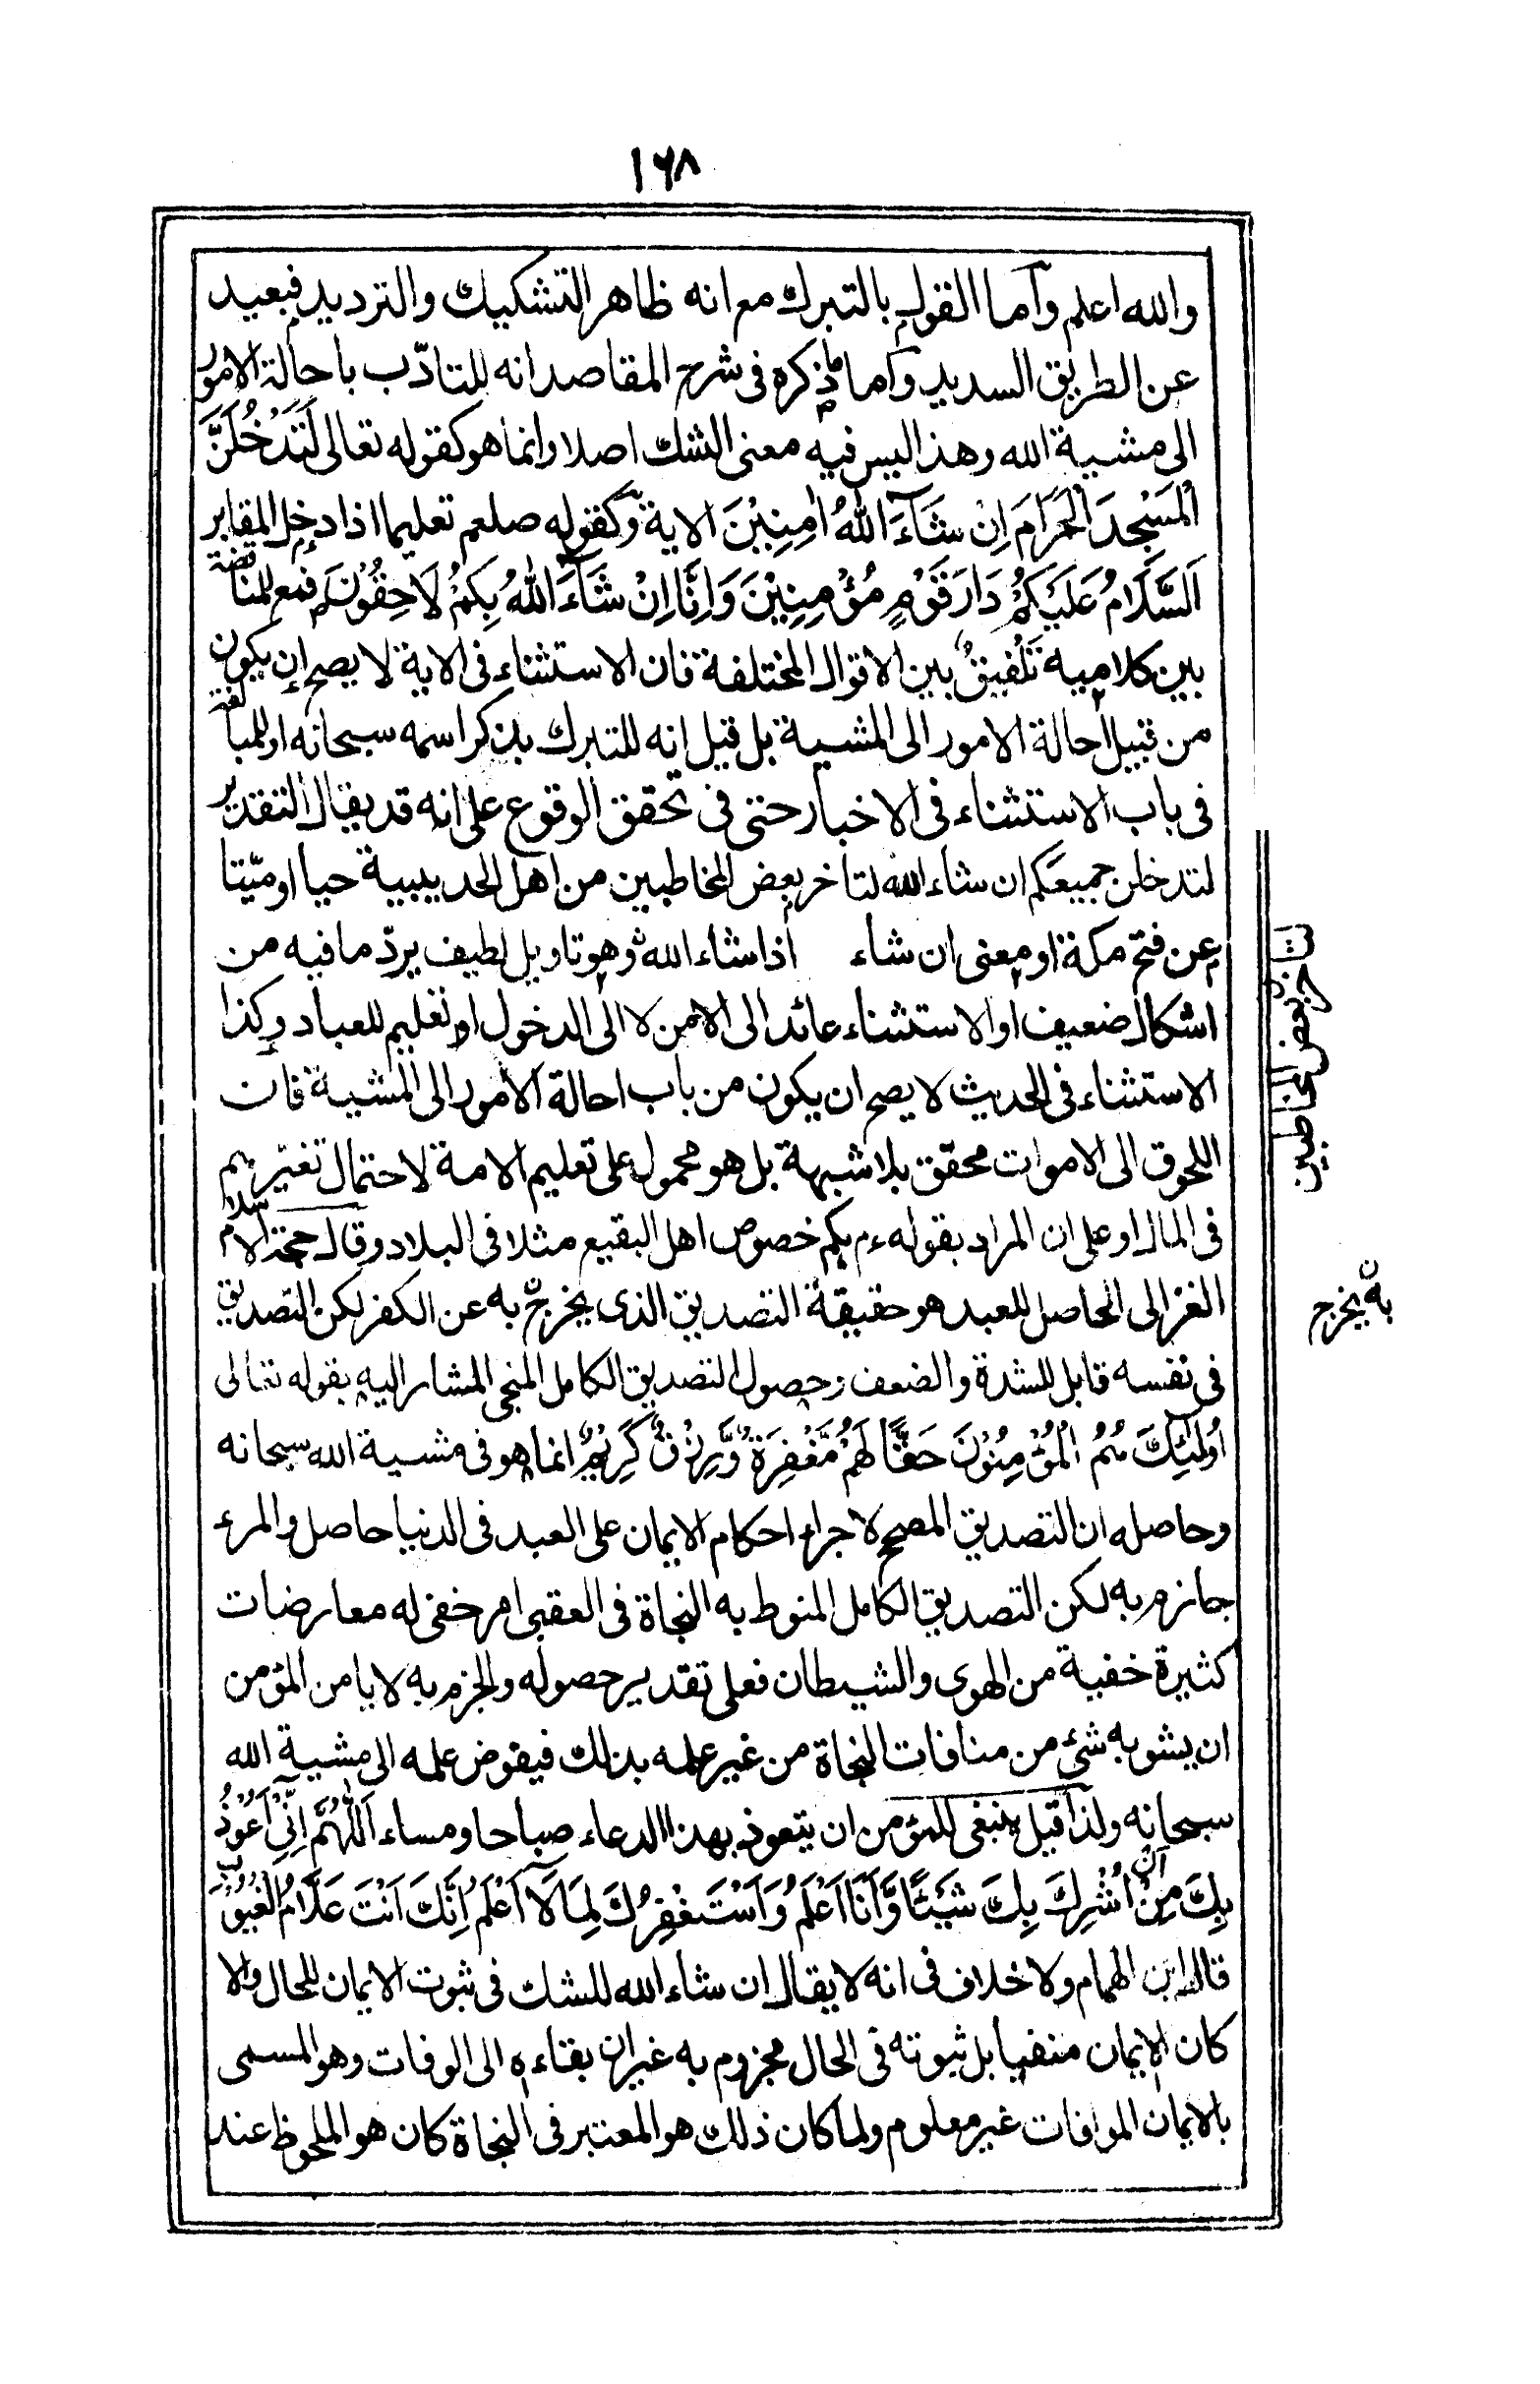 ١٦٨
والله اعلم وأما القول بالتبرك مع انه ظاهر التشكيك والترديد فبعيد
عن الطريق السديد وأما ما ذكره فى شرح المقاصد انه للتادّب باحالة الامور
الى مشية الله وهذا ليس فيه معنى الشك اصلا وانما هو كقوله تعالى لَتَدْخُلُنَّ
الْمَسْجِدَ الْحَرَامَ اِنْ شَآءَ اللّٰهُ اٰمِنِيْنَ الاية وكقوله صلعم تعليما اذا دخل المقابر
اَلسَّلَامُ عَلَيْكُمْ دَارَ قَوْمٍ مُؤْمِنِيْنَ وَاِنَّا اِنْ شَآءَ اللّٰهُ بِكُمْ لَاحِقُوْنَ فمع المناقضة
بين كلاميه تَلْفِيْقٌ بين الاقوال المختلفة فان الاستثناء فى الاية لا يصح ان يكون
من قبيل احالة الامور الى المشية بل قيل انه للتبرك بذكر اسمه سبحانه او للمبالغة
فى باب الاستثناء فى الاخبار حتى فى تحقق الوقوع على انه قد يقال التقدير
لتدخلن جميعكم ان شاء الله لتاخر بعض المخاطبين من اهل الحديبية حيا او ميّتا
عن فتح مكة او معنى ان شاء اذا شاء الله وهو تاويل لطيف يردّ ما فيه من
اشكال ضعيف او الاستثناء عائد الى الامن لا الى الدخول او تعليم للعباد وكذا
الاستثناء فى الحديث لا يصح ان يكون من باب احالة الامور الى المشية فان
اللحوق الى الاموات محقق بلا شبهة بل هو محمول على تعليم الامة لاحتمال تغيّرهم
فى المال او على ان المراد بقوله ءم بكم خصوص اهل البقيع مثلا فى البلاد وقال حجة الاسلام
الغزالى الحاصل للعبد هو حقيقة التصديق الذى يخرج به عن الكفر لكن التصديق
فى نفسه قابل للشدة والضعف وحصول التصديق الكامل المنجى المشار اليه بقوله تعالى
اُولٰئِكَ هُمُ الْمُؤْمِنُوْنَ حَقًّا لَهُمْ مَّغْفِرَةٌ وَّرِزْقٌ كَرِيْمٌ انما هو فى مشية الله سبحانه
وحاصله ان التصديق المصحح لاجراء احكام الايمان على العبد فى الدنيا حاصل والمرء
جازم به لكن التصديق الكامل المنوط به النجاة فى العقبى امر خفى له معارضات
كثيرة خفية من الهوى والشيطان فعلى تقدير حصوله والجزم به لا يامن المؤمن
ان يشوبه شئ من منافات النجاة من غير علمه بذلك فيفوض علمه الى مشية الله
سبحانه ولذا قيل ينبغى للمؤمن ان يتعوذ بهذا الدعاء صباحا ومساء اَللّٰهُمَّ اِنِّىْ اَعُوْذُ
بِكَ مِنْ اَنْ اُشْرِكَ بِكَ شَيْئًا وَّاَنَا اَعْلَمُ وَاَسْتَغْفِرُكَ لِمَا لَا اَعْلَمُ اِنَّكَ اَنْتَ عَلَّامُ الْغُيُوْبِ
قال ابن الهمام ولا خلاف فى انه لا يقال ان شاء الله للشك فى ثبوت الايمان للحال والا
كان الايمان منفيا بل ثبوته فى الحال مجزوم به غير ان بقاءه الى الوفات وهو المسمى
بالايمان الموافات غير معلوم ولما كان ذلك هو المعتبر فى النجاة كان هو الملحوظ عند
بعض المخاطبين
به يخرج